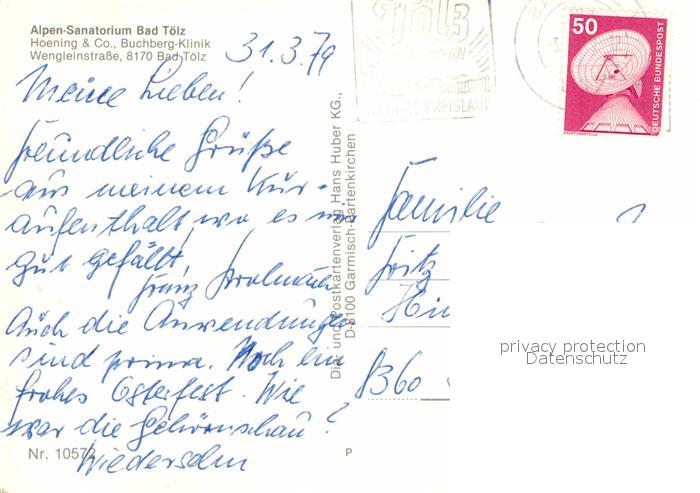 Alpen-Sanatorium Bad Tölz
Hoening & Co., Buchberg-Klinik
Wengleinstraße, 8170 Bad Tölz
31.3.79
Meine Lieben!
Freundliche Grüße
aus meinem Kur-
aufenthalt, wo es mir
gut gefällt,
Franz
Auch die Anwendungen
sind prima. Noch ein
frohes Osterfest. Wie
war die Gehörnschau?
Wiedersehn
Nr. 10572
P
Dia- und Postkartenverlag Hans Huber KG.,
D-8100 Garmisch-Partenkirchen
Tölz
KREISLAUF
50
DEUTSCHE BUNDESPOST
ERDEFUNKSTELLE
Familie
Fritz
Hin
8360
privacy protection
Datenschutz